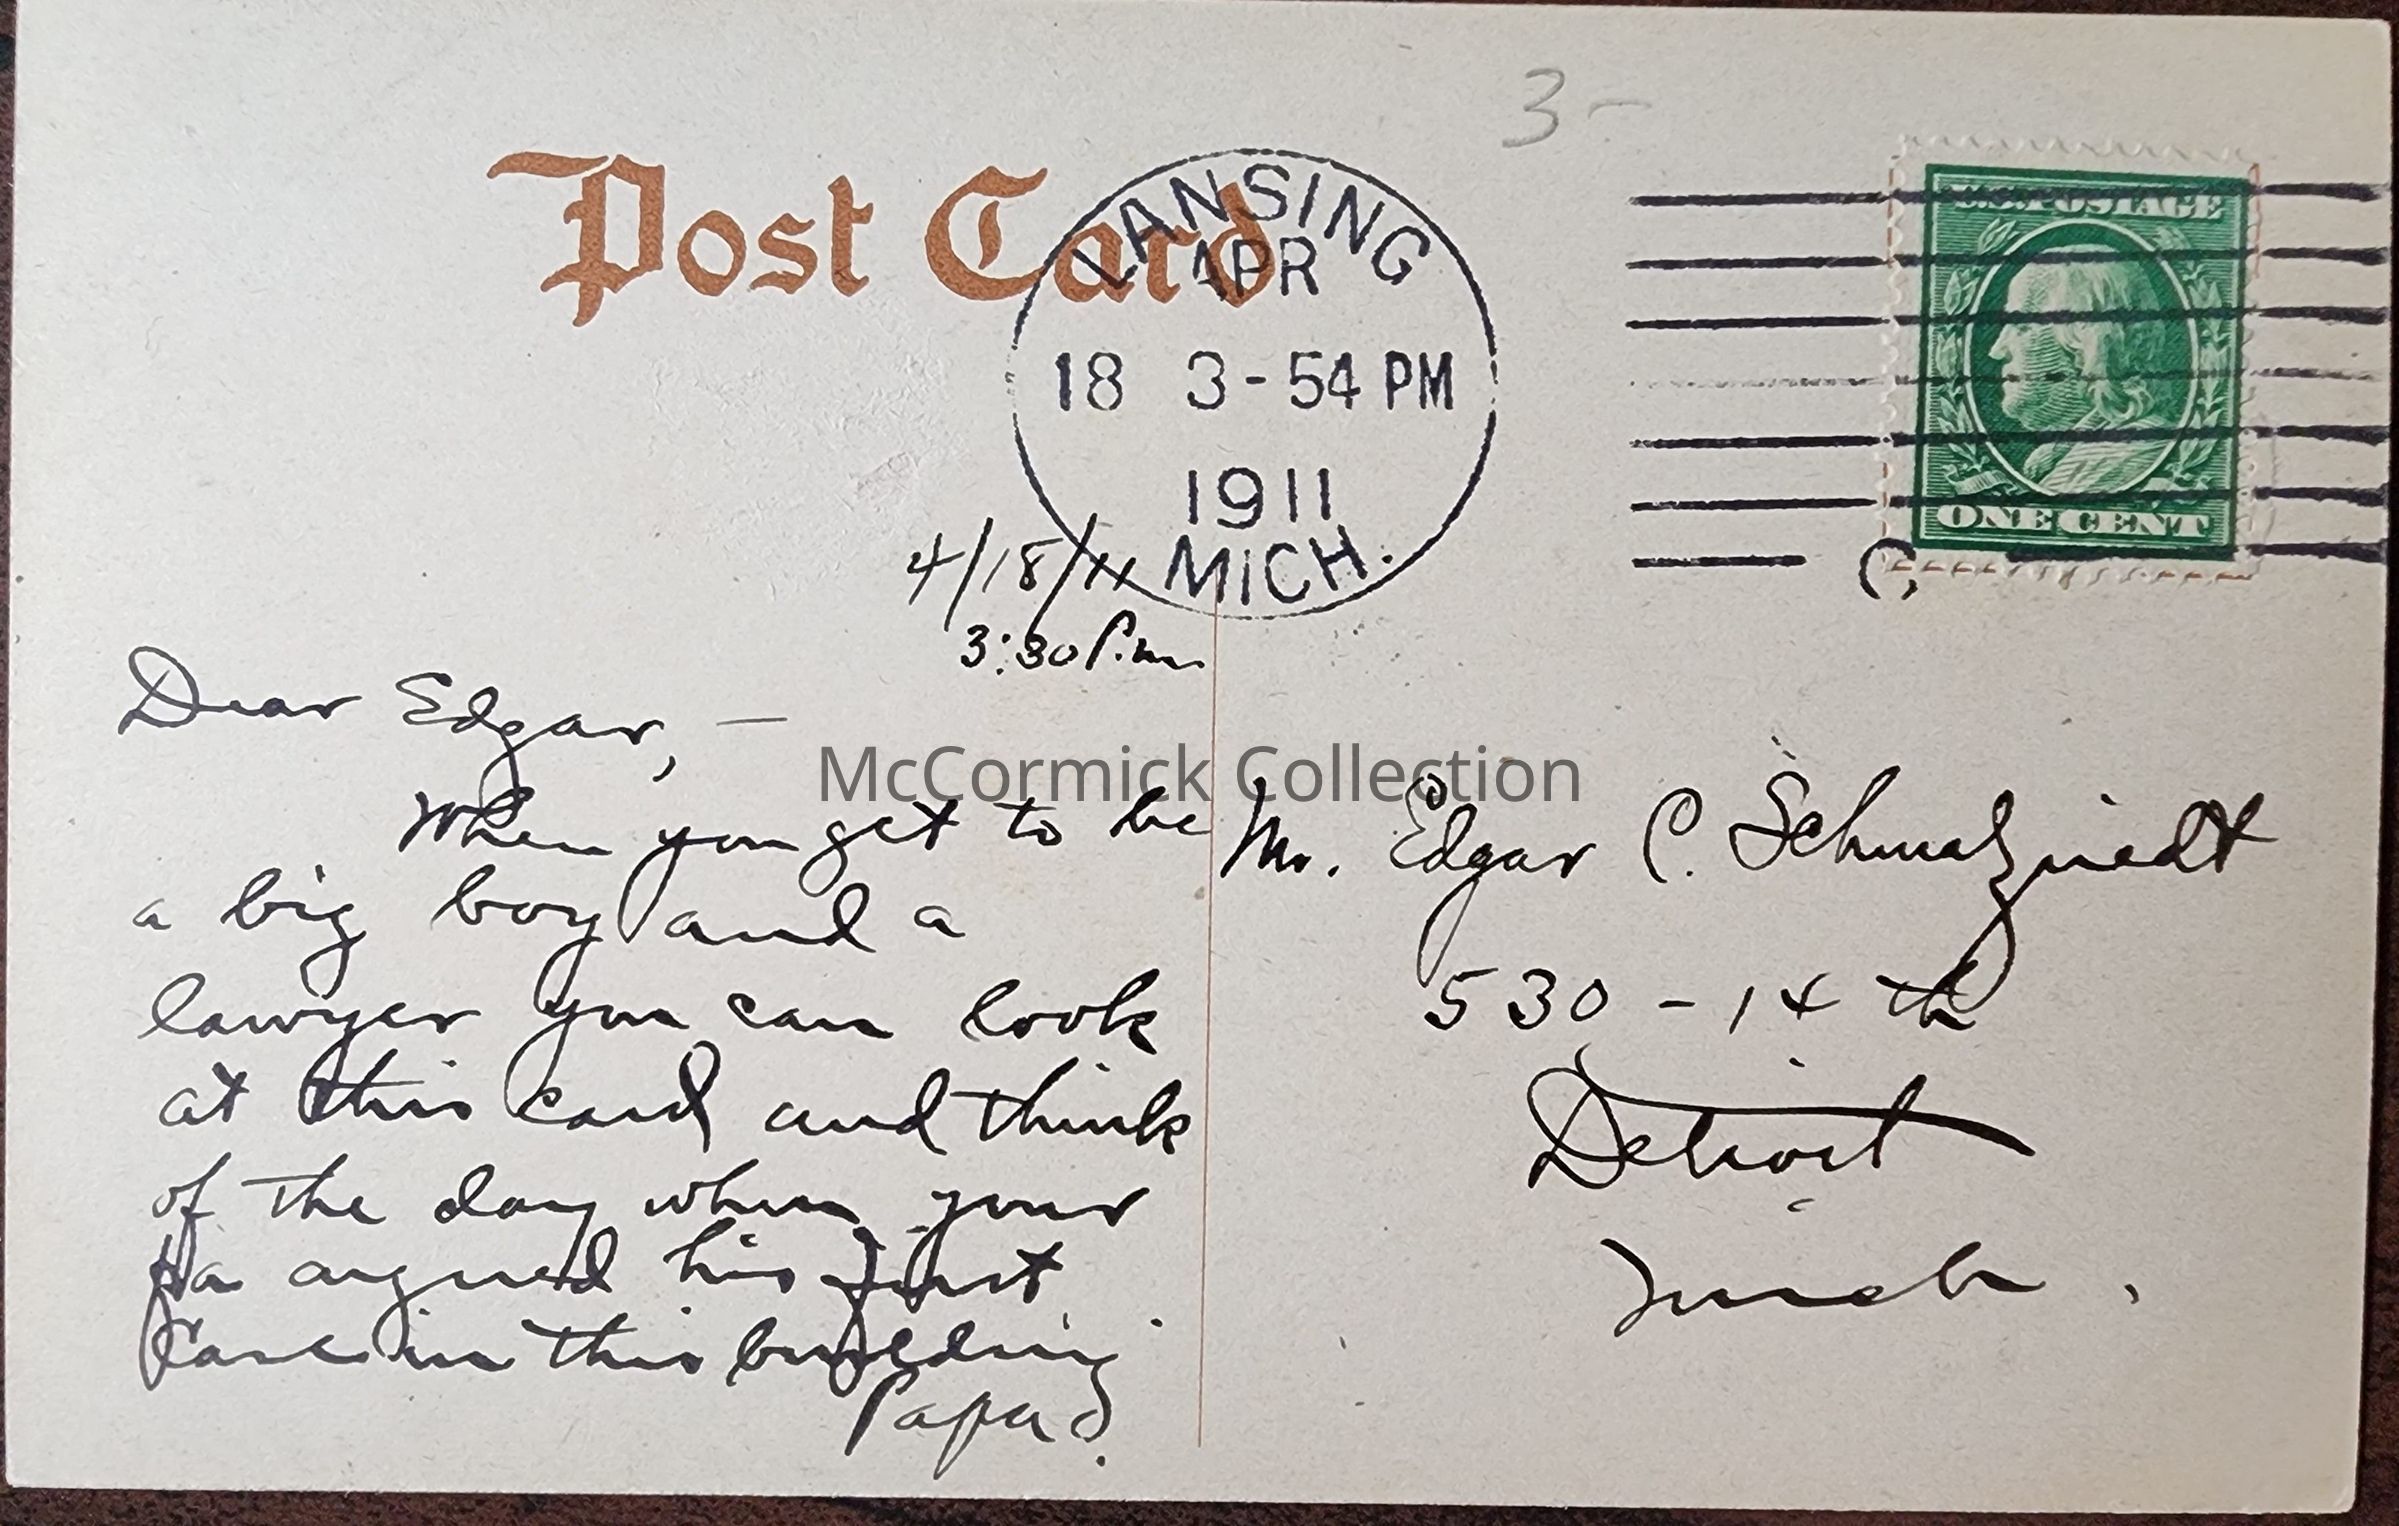 3-
Post Card
LANSING
APR
18 3-54 PM
1911
MICH.
U.S. POSTAGE
ONE CENT
4/18/11
3:30 P.m.
Dear Edgar, —
When you get to be
a big boy and a
lawyer you can look
at this card and think
of the day when your
Pa argued his first
case in this building.
Papa
McCormick Collection
Mr. Edgar C. Schmalzriedt
530 - 14 th
Detroit
Mich.